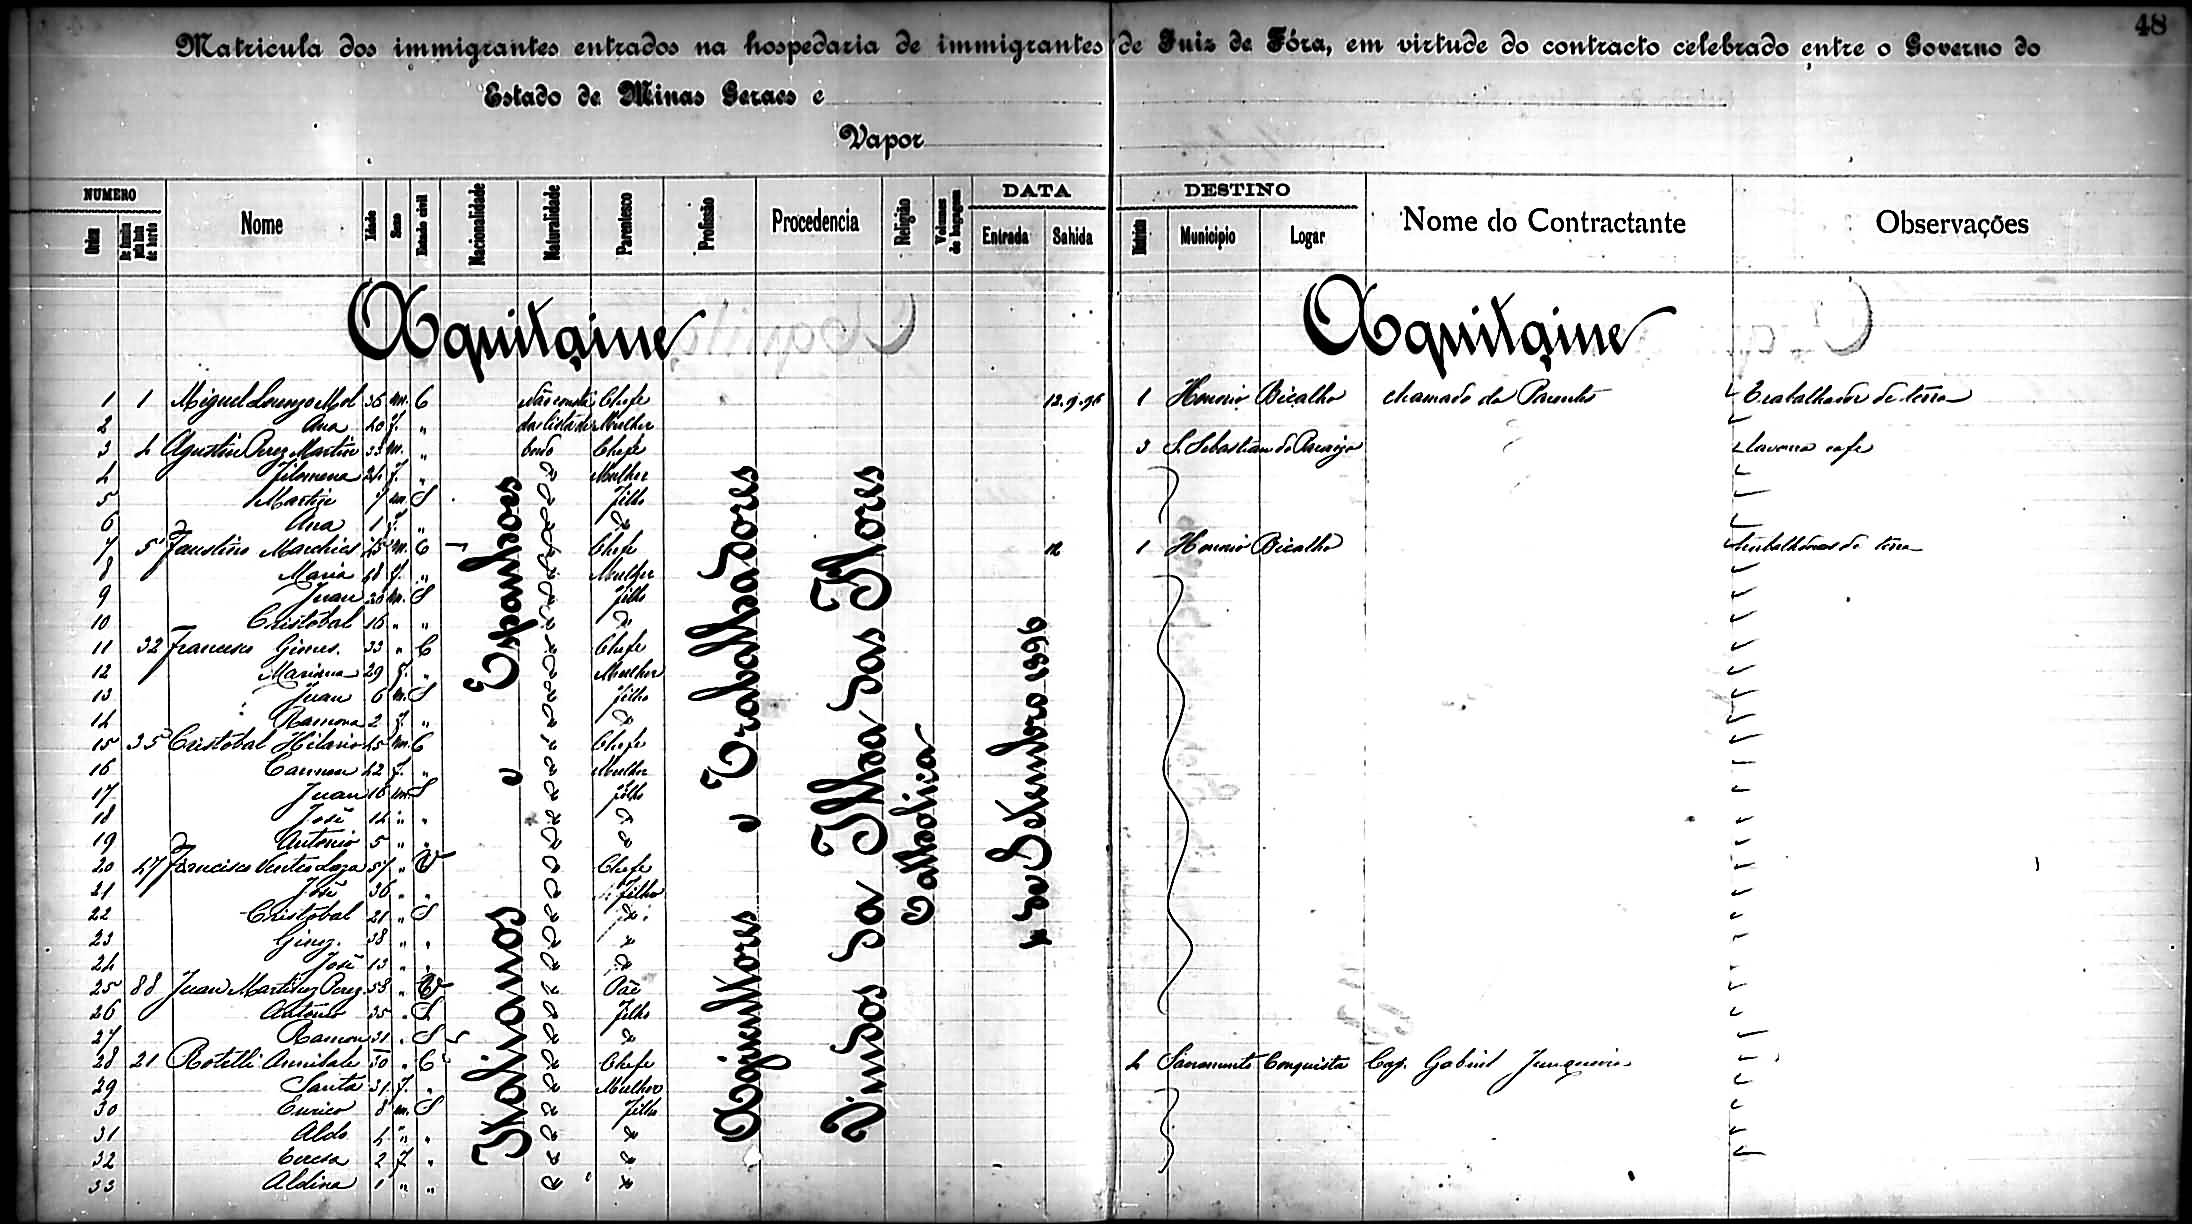 48
Matricula dos immigrantes entrados na hospedaria de immigrantes de Juiz de Fóra, em virtude do contracto celebrado entre o Governo do
Estado de Minas Geraes e
Vapor
NUMERO Nome Idade Sexo Estado civil Nacionalidade Naturalidade Parentesco Profissão Procedencia Religião Volumes de bagagem DATA DESTINO Nome do Contractante Observações
Ordem Entrada Sahida Districto Municipio Logar
Aquitaine Aquitaine
1 1 Miguel Lourenzo Mol 36 m. C Não consta Chefe 12.9.96 1 Honorio Bicalho chamado de Parentes Trabalhador de terra
2 Ana 40 f. " Mulher
3 4 Agustin Perez Martin 33 m. " bordo Chefe 3 S. Sebastian do Paraizo lavoura cafe
4 Filomena 24 f. " Mulher
5 7 m S Filho
6 Ana 1 f. " do
7 5 Faustino 45 m. C Chefe 12 1 Honorio Bicalho trabalhadores de terra
8 Maria 48 f. " Mulher
9 Juan 20 m. S Filho
10 Cristobal 16 " " do
11 32 Francisco Gimes. 33 " C Chefe
12 Mariana 29 f. " Mulher
13 Juan 6 m. S Filho
14 Ramona 2 f. " do
15 35 Cristobal Hilario 45 m. C Chefe
16 Carmen 42 f. " Mulher
17 Juan 16 m. S Filho
18 José 14 " " do
19 Antonio 5 " " do
20 47 Francisco 57 " V Chefe
21 José 36 " " Filho
22 Cristobal 21 " S do
23 Ginez. 38 " " do
24 José 13 " " do
25 88 Juan Martinez Perez 58 " V Pae
26 Antonio 35 " S Filho
27 Ramon 31 " S do
28 21 Rotelli Annibale 30 " C Chefe 4 Sacramento Conquista Cap. Gabriel Junqueira
29 Santa 31 f. " Mulher
30 Enrico 8 m. S Filho
31 Aldo 4 " " do
32 2 f " do
33 Aldina 1 " " do
Espanhoes
e
Italianos
Trabalhadores
e
Agricultores
Vindos da Ilha das Flores
Catholica
de Setembro 1896